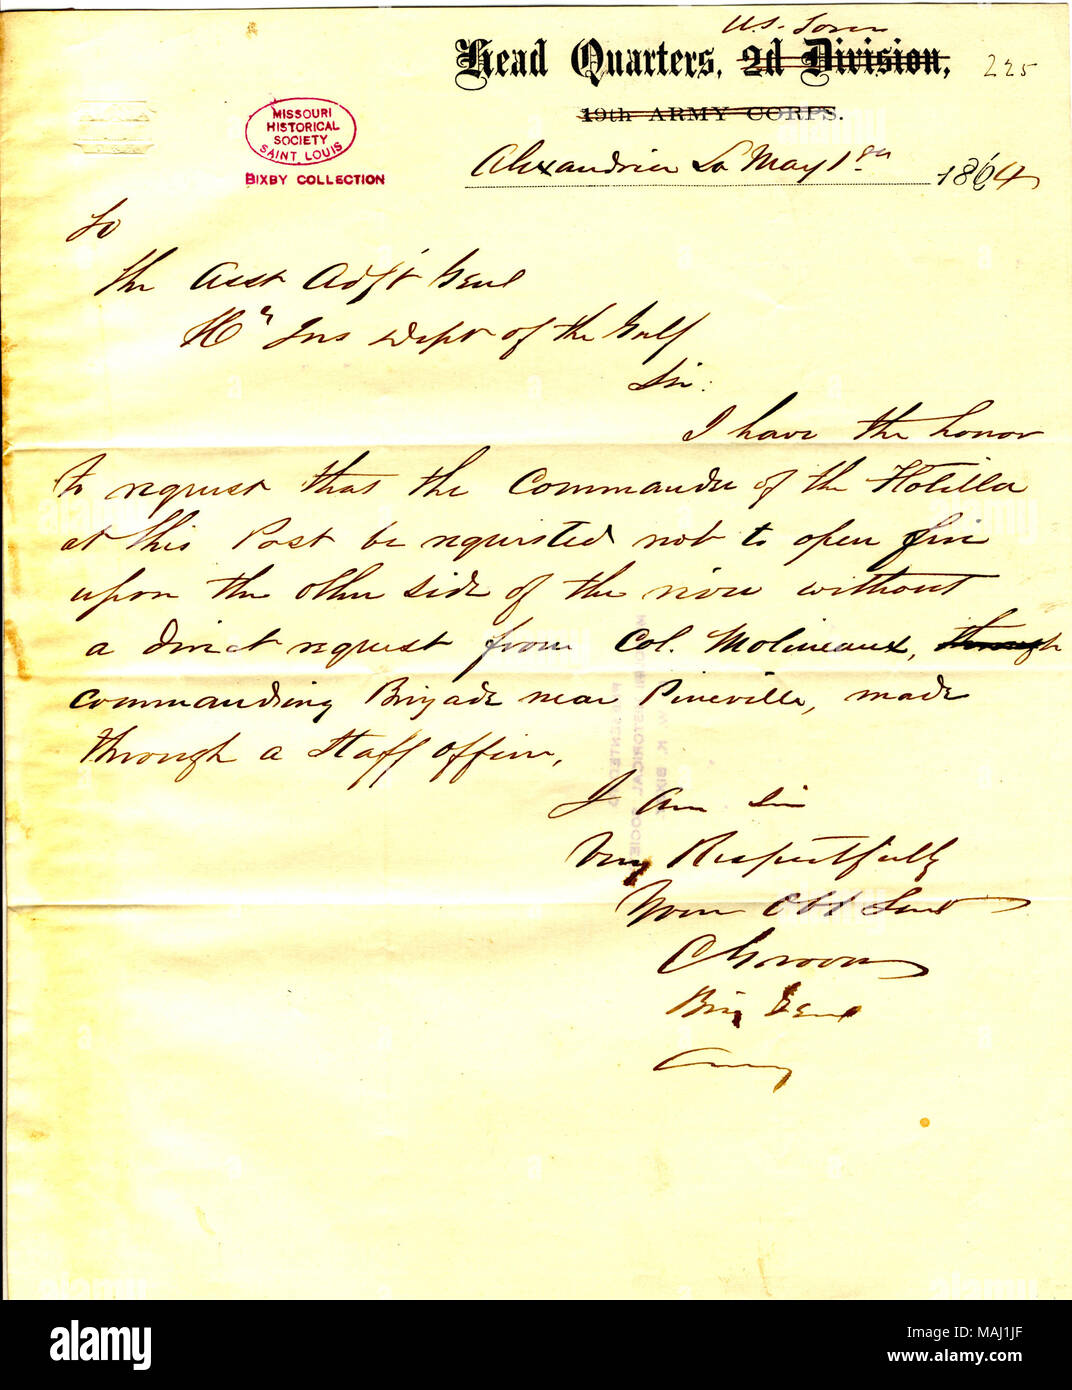 U.S. Forces
Head Quarters, 2d Division, 225
19th ARMY CORPS.
MISSOURI
HISTORICAL
SOCIETY
SAINT LOUIS
BIXBY COLLECTION
Alexandria La May 1st 1864
To
The Asst Adjt Genl
Hd Qrs Dept of the Gulf
Sir:
I have the honor
to request that the Commander of the Flotilla
at this Post be requested not to open fire
upon the other side of the river without
a direct request from Col. Molineaux, through
commanding Brigade near Pineville, made
through a Staff officer.
I am Sir
Very Respectfully
Your Obt Servt
C Grover
Brig Genl
a alamy
Image ID: MAJ1JF
www.alamy.com